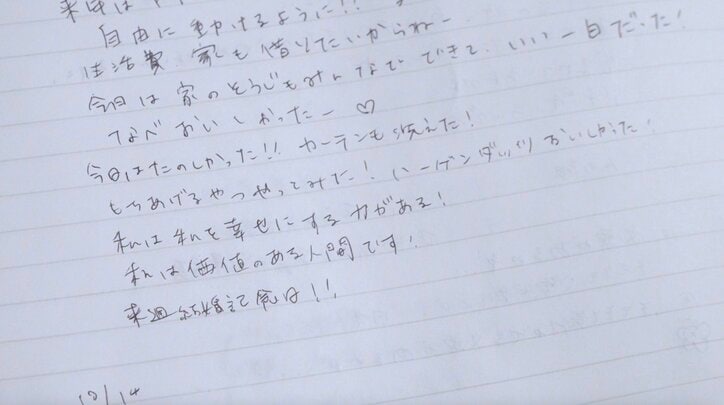 来年は
自由に動けるように!!
生活費 家も借りたいからねー
今日は家のそうじもみんなでできて、いい一日だった!
なべおいしかったー♡
今日はたのしかった!! カーテンも洗えた!
もちあげるやつやってみた! ハーゲンダッツおいしかった!
私は私を幸せにする力がある!
私は価値のある人間です!
来週結婚記念日!!
12/14